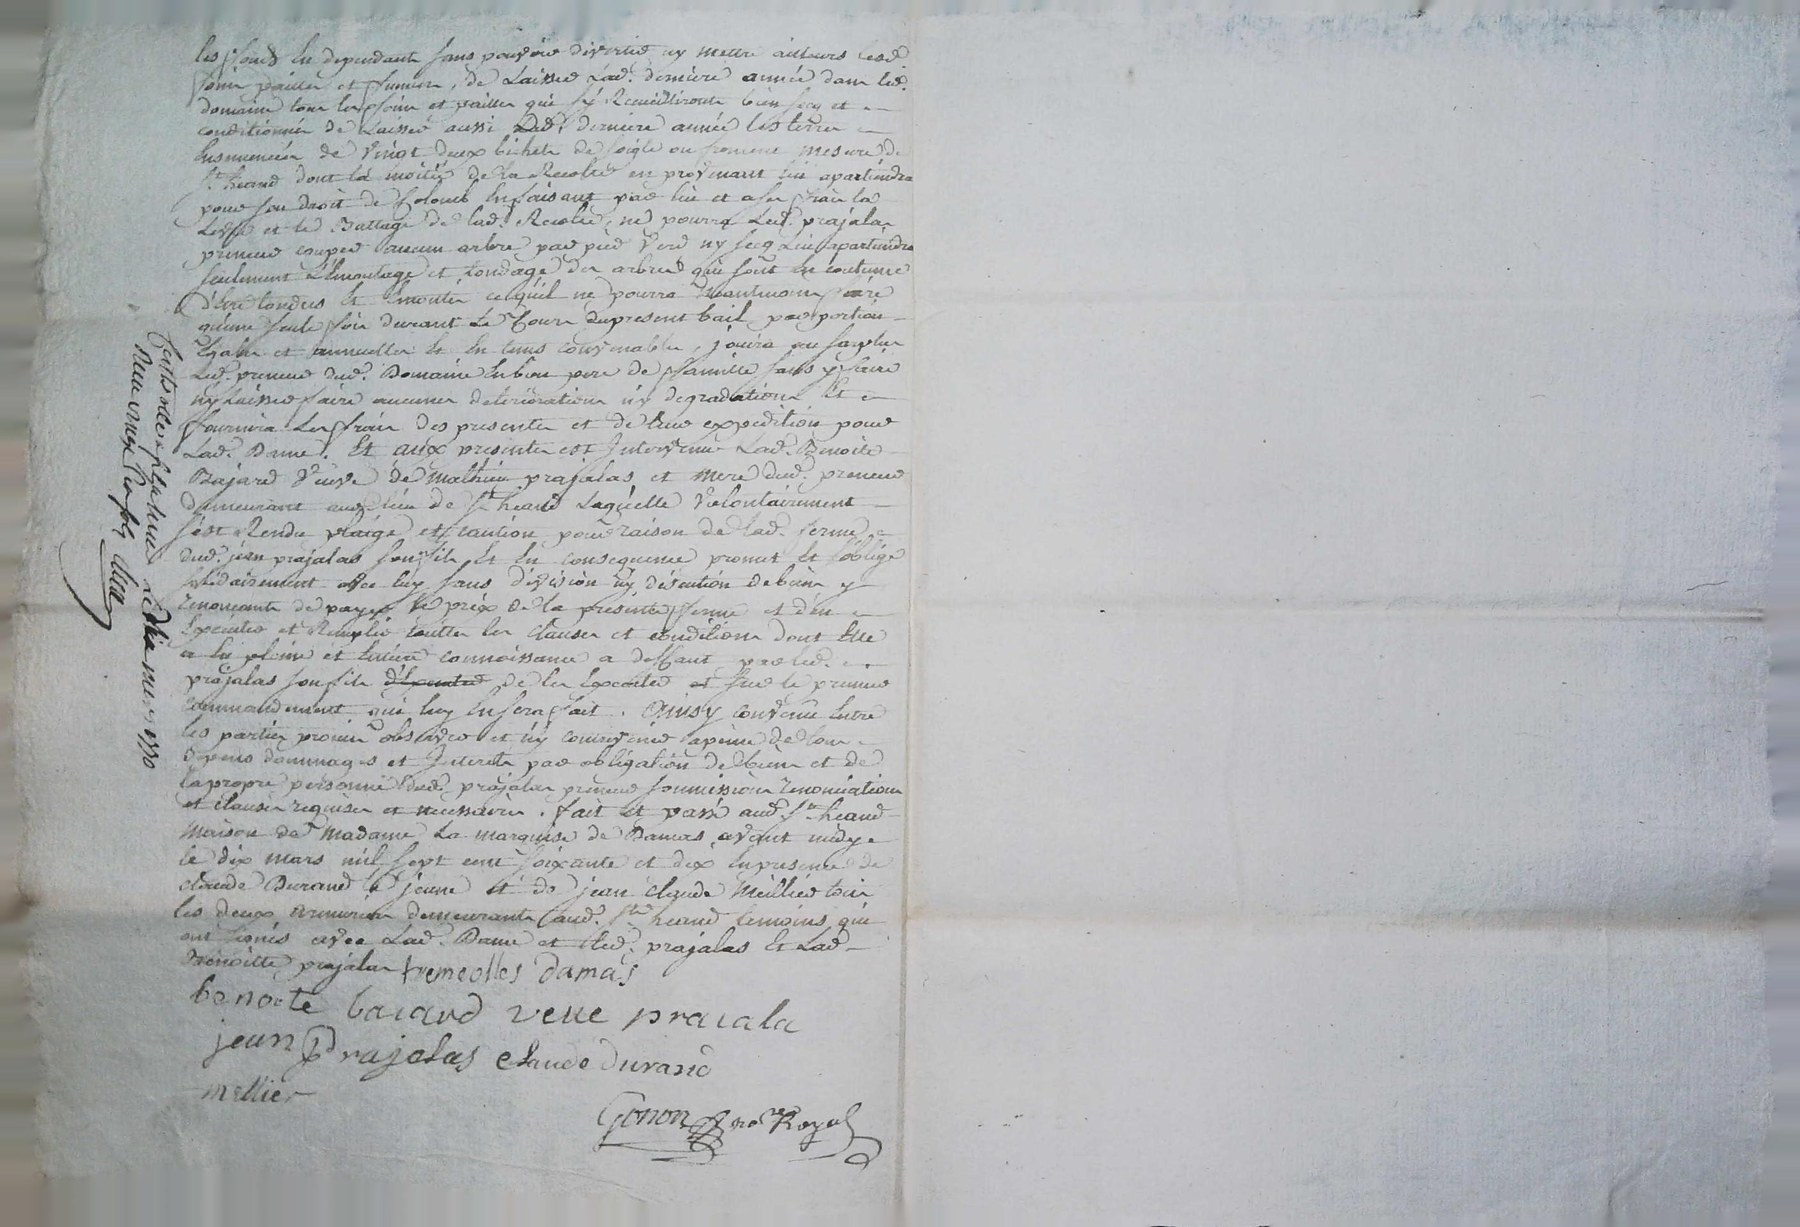 les fonds en dependant sans pouvoir divertir ny mettre ailleurs lesd.
foin pailles et fumiers, de Laisser Lad. derniere année dans led.
domaine tous les foins et pailles qui s'y Recueilliront bien secq et
conditionnés de Laisser aussi Lad. derniere année les terres
Ensemencées de vingt deux bichets de seigle ou froment mesure de
St. heand dont la moitié de la Recolte en provenant lui apartiendra
pour son droit de Colons En faisant par lui et a ses frais la
Levée et le Battage de lad. Recolte, ne pourra Led. prajalas
preneur couper aucun arbre par pied verd ny secq Lui apartiendra
seulement L'Emondage et tondage des arbres qui sont en coutume
d'être tondus Et Emondés ce qu'il ne pourra Neantmoins faire
qu'une seule fois durant Le Cours du present bail par portion
Egales et annuelles Et En tems convenables, jouira au surplus
Led. preneur dud. Domaine En bon pere de famille sans y faire
ny Laisser faire aucunes deteriorations ny degradations Et
fournira Les frais des presentes et de leur expedition pour
Lad. Dame. Et aux presentes est Intervenue Lad. Benoite
Bajard Veuve de mathieu prajalas et mere dud. preneur
demeurant aud. lieu de St. heand Laquelle volontairement
s'est Rendu pleige et caution pour raison de lad. ferme
dud. jean prajalas son fils Et En consequence promet Et s'oblige
solidairement avec luy sans division ny discution de biens y
renonceants de payer le prix de la presente ferme et d'en
Executer et Remplir toutes les clauses et conditions dont Elle
a Eu pleine et Entiere connoissance a deffaut par led.
prajalas son fils d'Executer de les Executer et sur le premier
commandement qui luy En sera fait. Ainsy convenu Entre
les parties promis observer et n'y contrevenir a peine de tous
depens dommages et Interets par obligation de biens et de
la propre personne dud. prajalas preneur soumissions renonciations
et clauses requises et necessaires. fait et passé aud. St. heand
maison de Madame La marquise de Damas avant midy
le dix mars mil sept cent soixante et dix En presence de
claude Durand le jeune et de jean claude Meillier tous
les deux Armuriers demeurants aud. St. heand temoins qui
ont signés avec Lad. Dame et led. prajalas Et Lad.
Benoitte prajalas tremeolles damas
benoite baiard veue praiala
jean prajalas claude durand
mellier
Gonon nore. Royal
le dix mars 1770